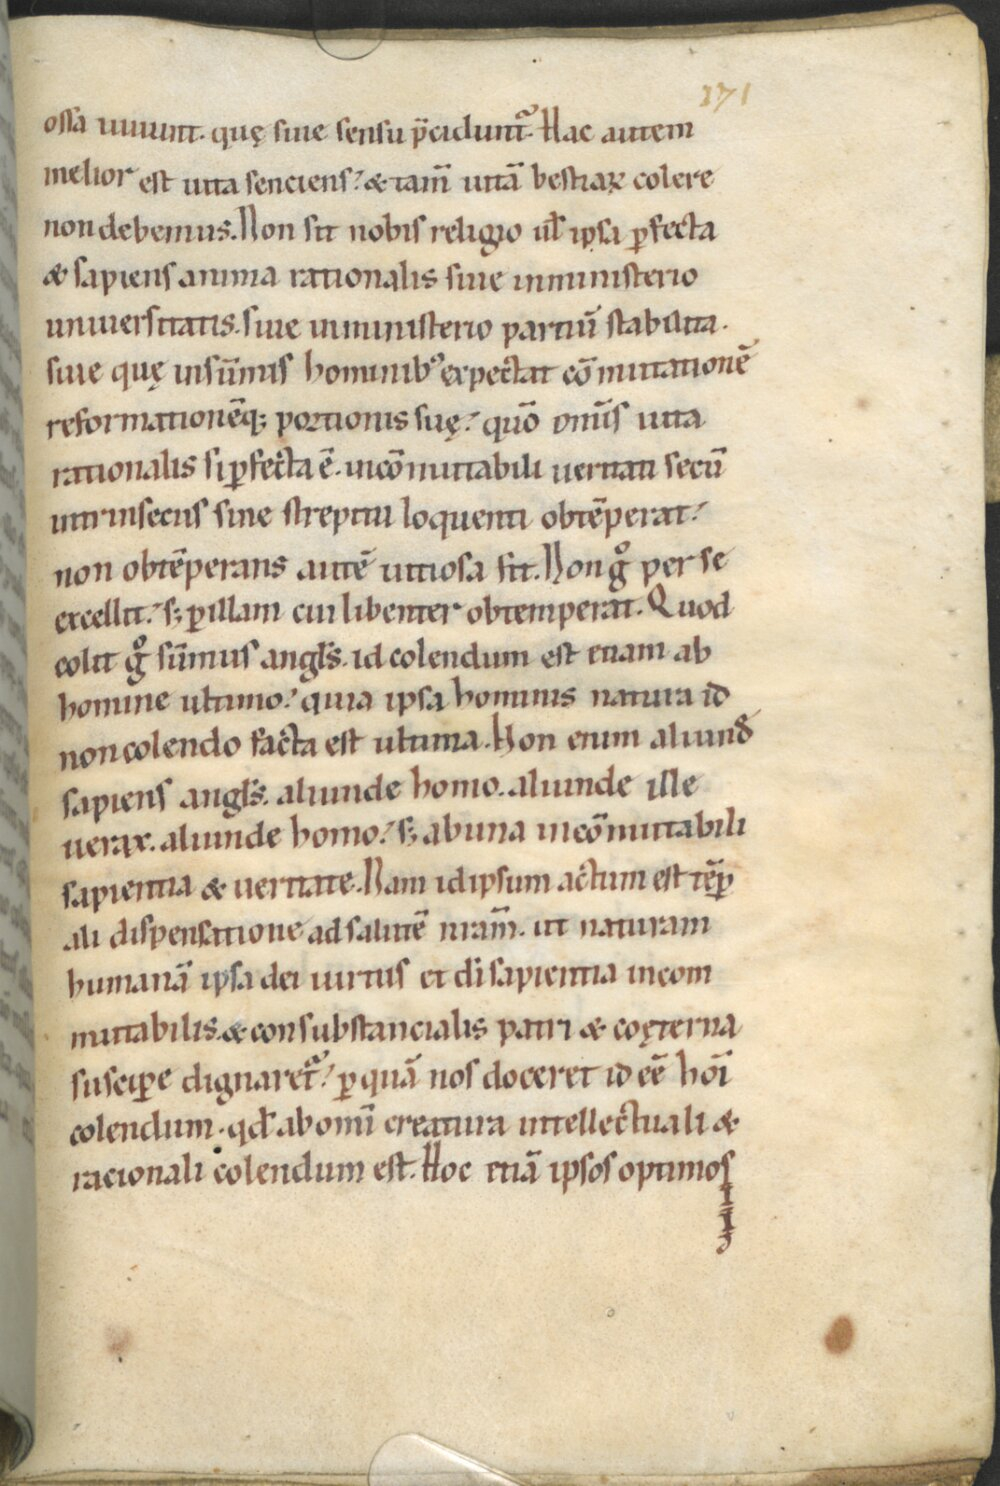 171
ossa uiuunt. quę siue sensu p̄cidunt᷑. Hac autem
melior est uita senciens? & tam̄ uitā bestiaꝝ colere
non debemus. Non sit nobis religio ul̄ ipsa ꝑfecta
& sapiens anima rationalis siue inministerio
uniuersitatis. siue inministerio partiū stabilita.
siue quę insūmis hominibꝰ expectat cōmutationē
reformationēq; portionis suę? quō om̄is uita
rationalis si ꝑfecta ē. incōmutabili ueritati secū
intrinsecus sine strepitu loquenti obtēperat?
non obtēperans autē uitiosa fit. Non gͦ per se
excellit? s; ꝑ illam cui libenter obtemperat. Quod
colit gͦ sūmus angl̄s. id colendum est etiam ab
homine ultimo? quia ipsa hominis natura id
non colendo facta est ultima. Non enim aliund̄
sapiens angl̄s. aliunde homo. aliunde ille
uerax. aliunde homo? s; ab una incōmutabili
sapientia & ueritate. Nam id ipsum actum est tēꝑ
ali dispensatione ad salutē nram̄. ut naturam
humanā ipsa dei uirtus et di sapientia incom
mutabilis. & consubstancialis patri & coęterna
susciꝑe dignaret᷑? ꝑ quā nos doceret id eē hōi
colendum. qd̄ ab omi creatura intellectuali &
racionali colendum est. Hoc etiā ipsos optimos